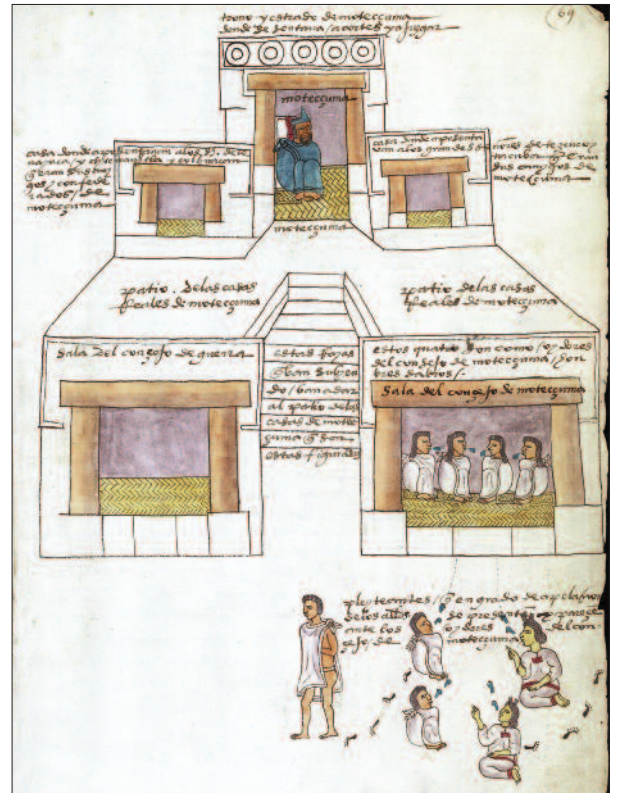 trono y estrado de motecçuma
donde se sentava a cortes y a juzgar
69
motecçuma
casa donde aposentavan a los s.res de te
nayuca / y chicnauhtla y culhuacan
que eran sus ami
gos / y confede
rados / de
motecçuma
casa donde aposenta
van a los grandes s
ñores de tezcuco / y
tacuba / que eran
sus amigos de
motecçuma
motecçuma
patio . de las casas
Reales de motecçuma
patio de las casas
Reales de motecçuma
sala del consejo de guerra
estas Rayas
que van subyen
do / van a dar
al patio de las
casas de motec
çuma que son
estas figuradas
estos quatro son como / oydores
del consejo de motecçuma / hon
bres sabios /.
sala del consejo de motecçuma
pleyteantes / que en grado de apelaçion
de los allds se presentan y pareçen
ante los oydores del con
sejo de motecçuma